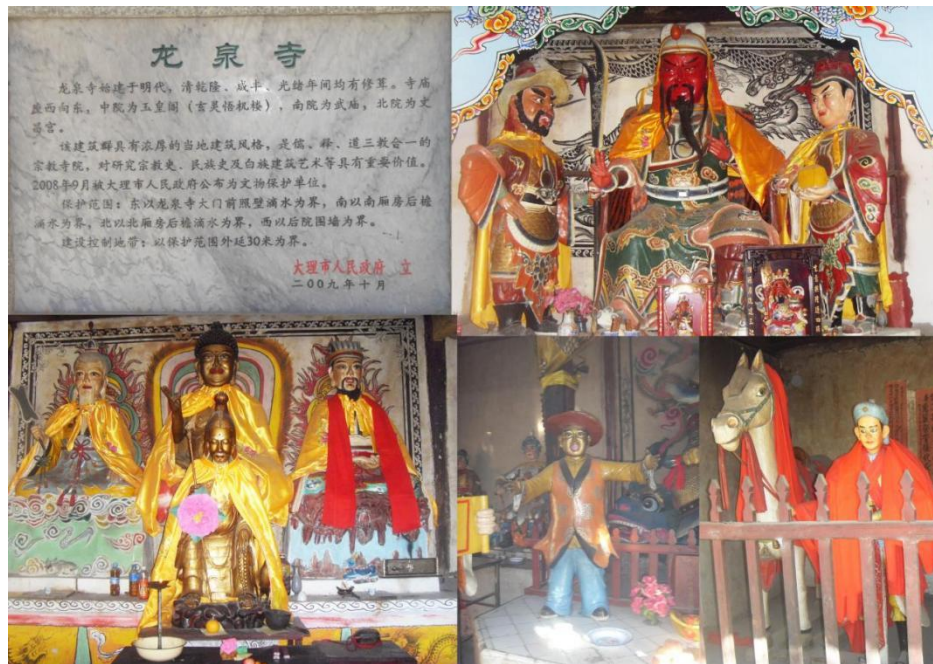 龙泉寺
龙泉寺始建于明代，清乾隆、咸丰、光绪年间均有修葺。寺庙
座西向东，中院为玉皇阁（玄灵悟机楼），南院为武庙，北院为文
昌宫。
该建筑群具有浓厚的当地建筑风格，是儒、释、道三教会一的
宗教寺院，对研究宗教史、民族史及白族建筑艺术等具有重要价值。
2008年9月被大理市人民政府公布为文物保护单位。
保护范围：东以龙泉寺大门前照壁滴水为界，南以南厢房后檐
滴水为界，北以北厢房后檐滴水为界，西以后院围墙为界。
建设控制地带：以保护范围外延30米为界。
大理市人民政府 立
二00九年十月